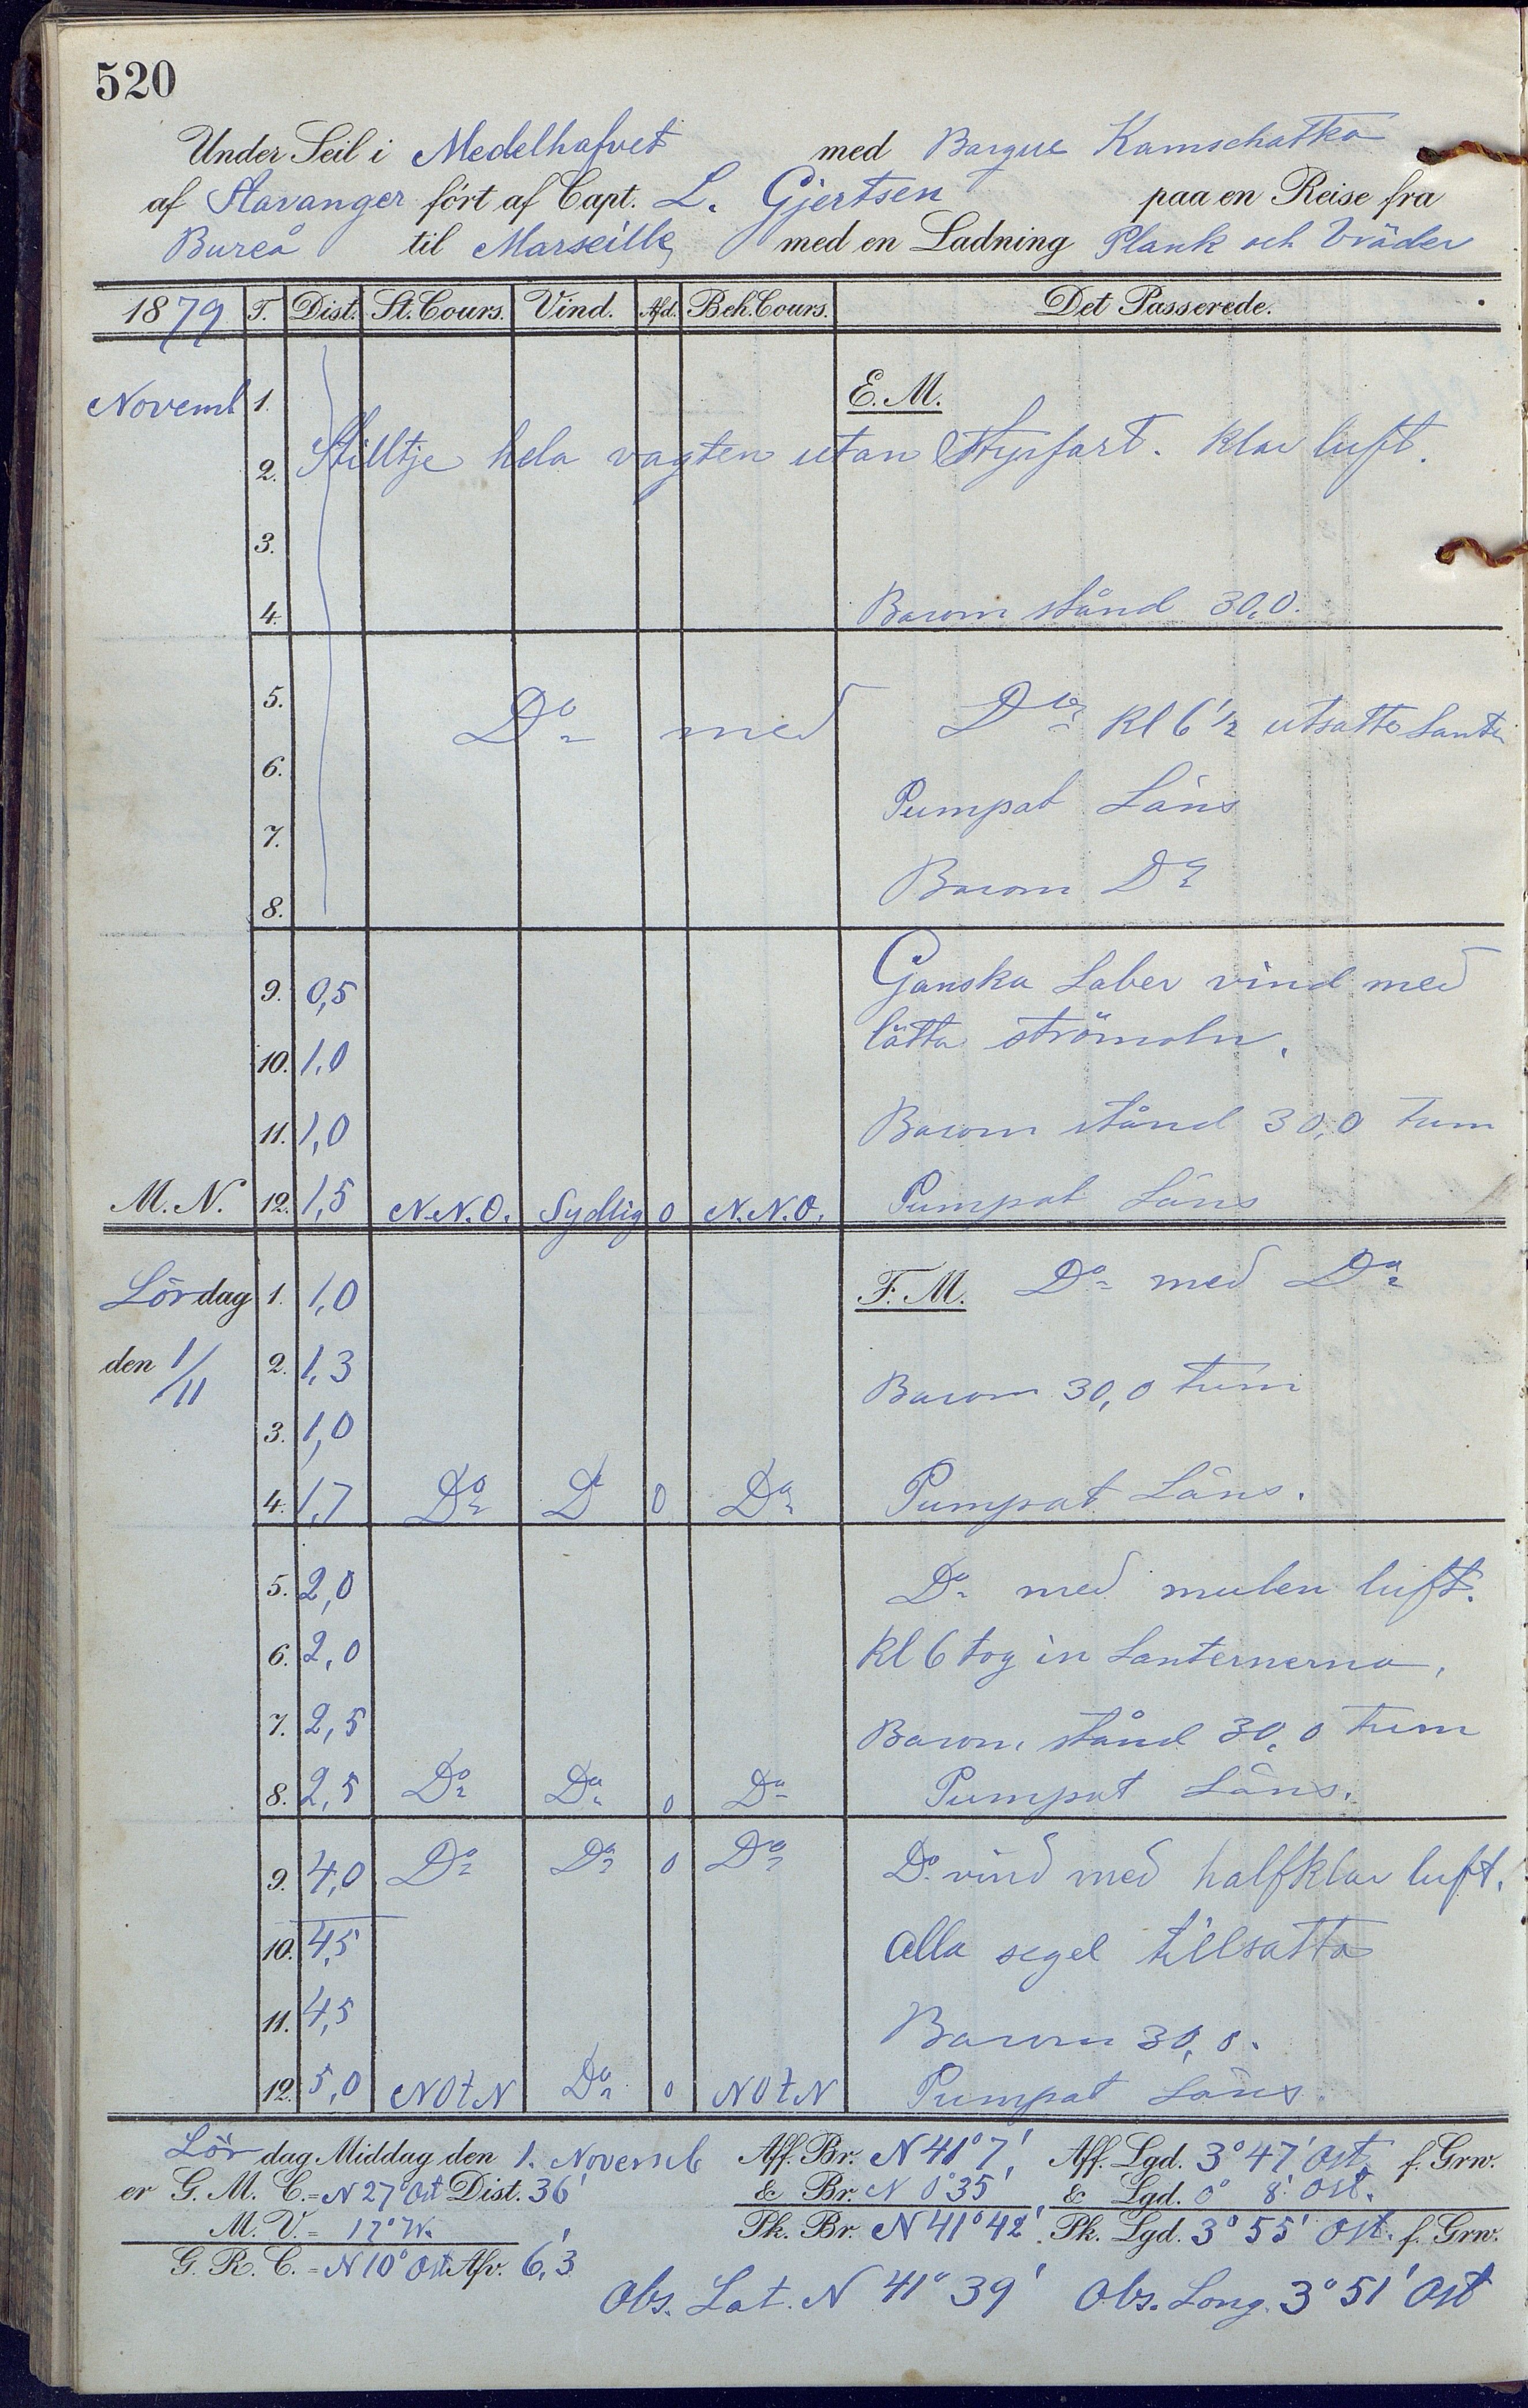 520
Under Seil i Medelhafvet med Barque Kamschatka
af Stavanger fört af Capt. L. Gjertsen paa en Reise fra
Bureå til Marseille med en Ladning Plank och
1879 T. Dist. St. Cours. Vind. Afd. Beh. Cours. Det Passerede.
Novemb 1. E. M.
2. Stilltje hela vagten utan Styrfart. Klar luft.
3.
4. Barom stånd 30,0.
5.
Do med Do Kl 6 1/2 utsatte Lant
6.
Pumpat Läns
7.
Barom Do
8.
Ganska Laber vind med
9. 0,5
lätta strömoln.
10. 1,0
11. 1,0 Barom stånd 30,0 tum
M. N. 12. 1,5 N.N.O. Sydlig 0 N.N.O. Pumpat Läns
Lördag 1. 1,0 F. M. Do med Do
den 1/11 2. 1,3 Barom 30,0 tum
3. 1,0
4. 1,7 Do Do 0 Do Pumpat Läns.
5. 2,0 Do med mulen luft.
6. 2,0 Kl 6 tog in Lanternerna,
7. 2,5 Barom. stånd 30,0 tum
8. 2,5 Do Do 0 Do Pumpat Läns.
9. 4,0 Do Do 0 Do Do vind med halfklar luft.
10. 4,5 alla segel tillsatta
11. 4,5 Barom 30,0.
12. 5,0 NOtN Do 0 NOtN Pumpat Läns.
Lördag Middag den 1. Novemb Aff. Br. N 41° 7' Aff. Lgd. 3° 47' Ost f. Grw.
er G. M. C. = N 27° Ost Dist. 36' & Br. N 0° 35' & Lgd. 0° 8' Ost.
M. V. = 17° W. Pk. Br. N 41° 42' Pk. Lgd. 3° 55' Ost. f. Grw.
G. R. C. = N 10° Ost Afv. 6,'3
Obs. Lat. N 41° 39' Obs. Long. 3° 51' Ost